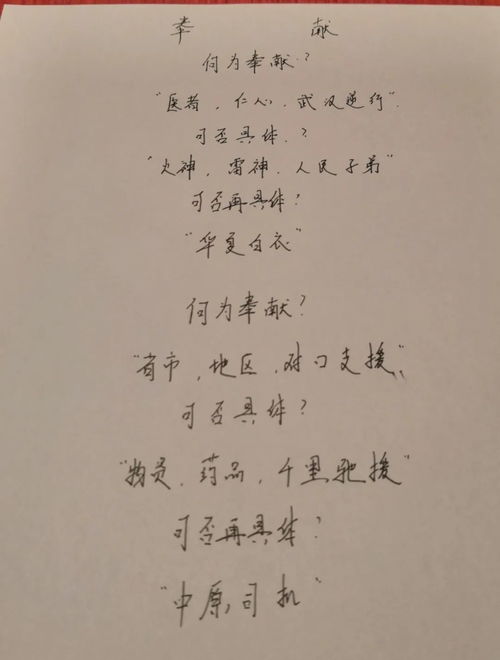 奉 献
何为奉献？
“医者，仁心，武汉逆行”
可否具体？
“火神，雷神，人民子弟”
可否再具体？
“华夏白衣”
何为奉献？
“省市，地区，对口支援”
可否具体？
“物资，药品，千里驰援”
可否再具体？
“中原，司机”